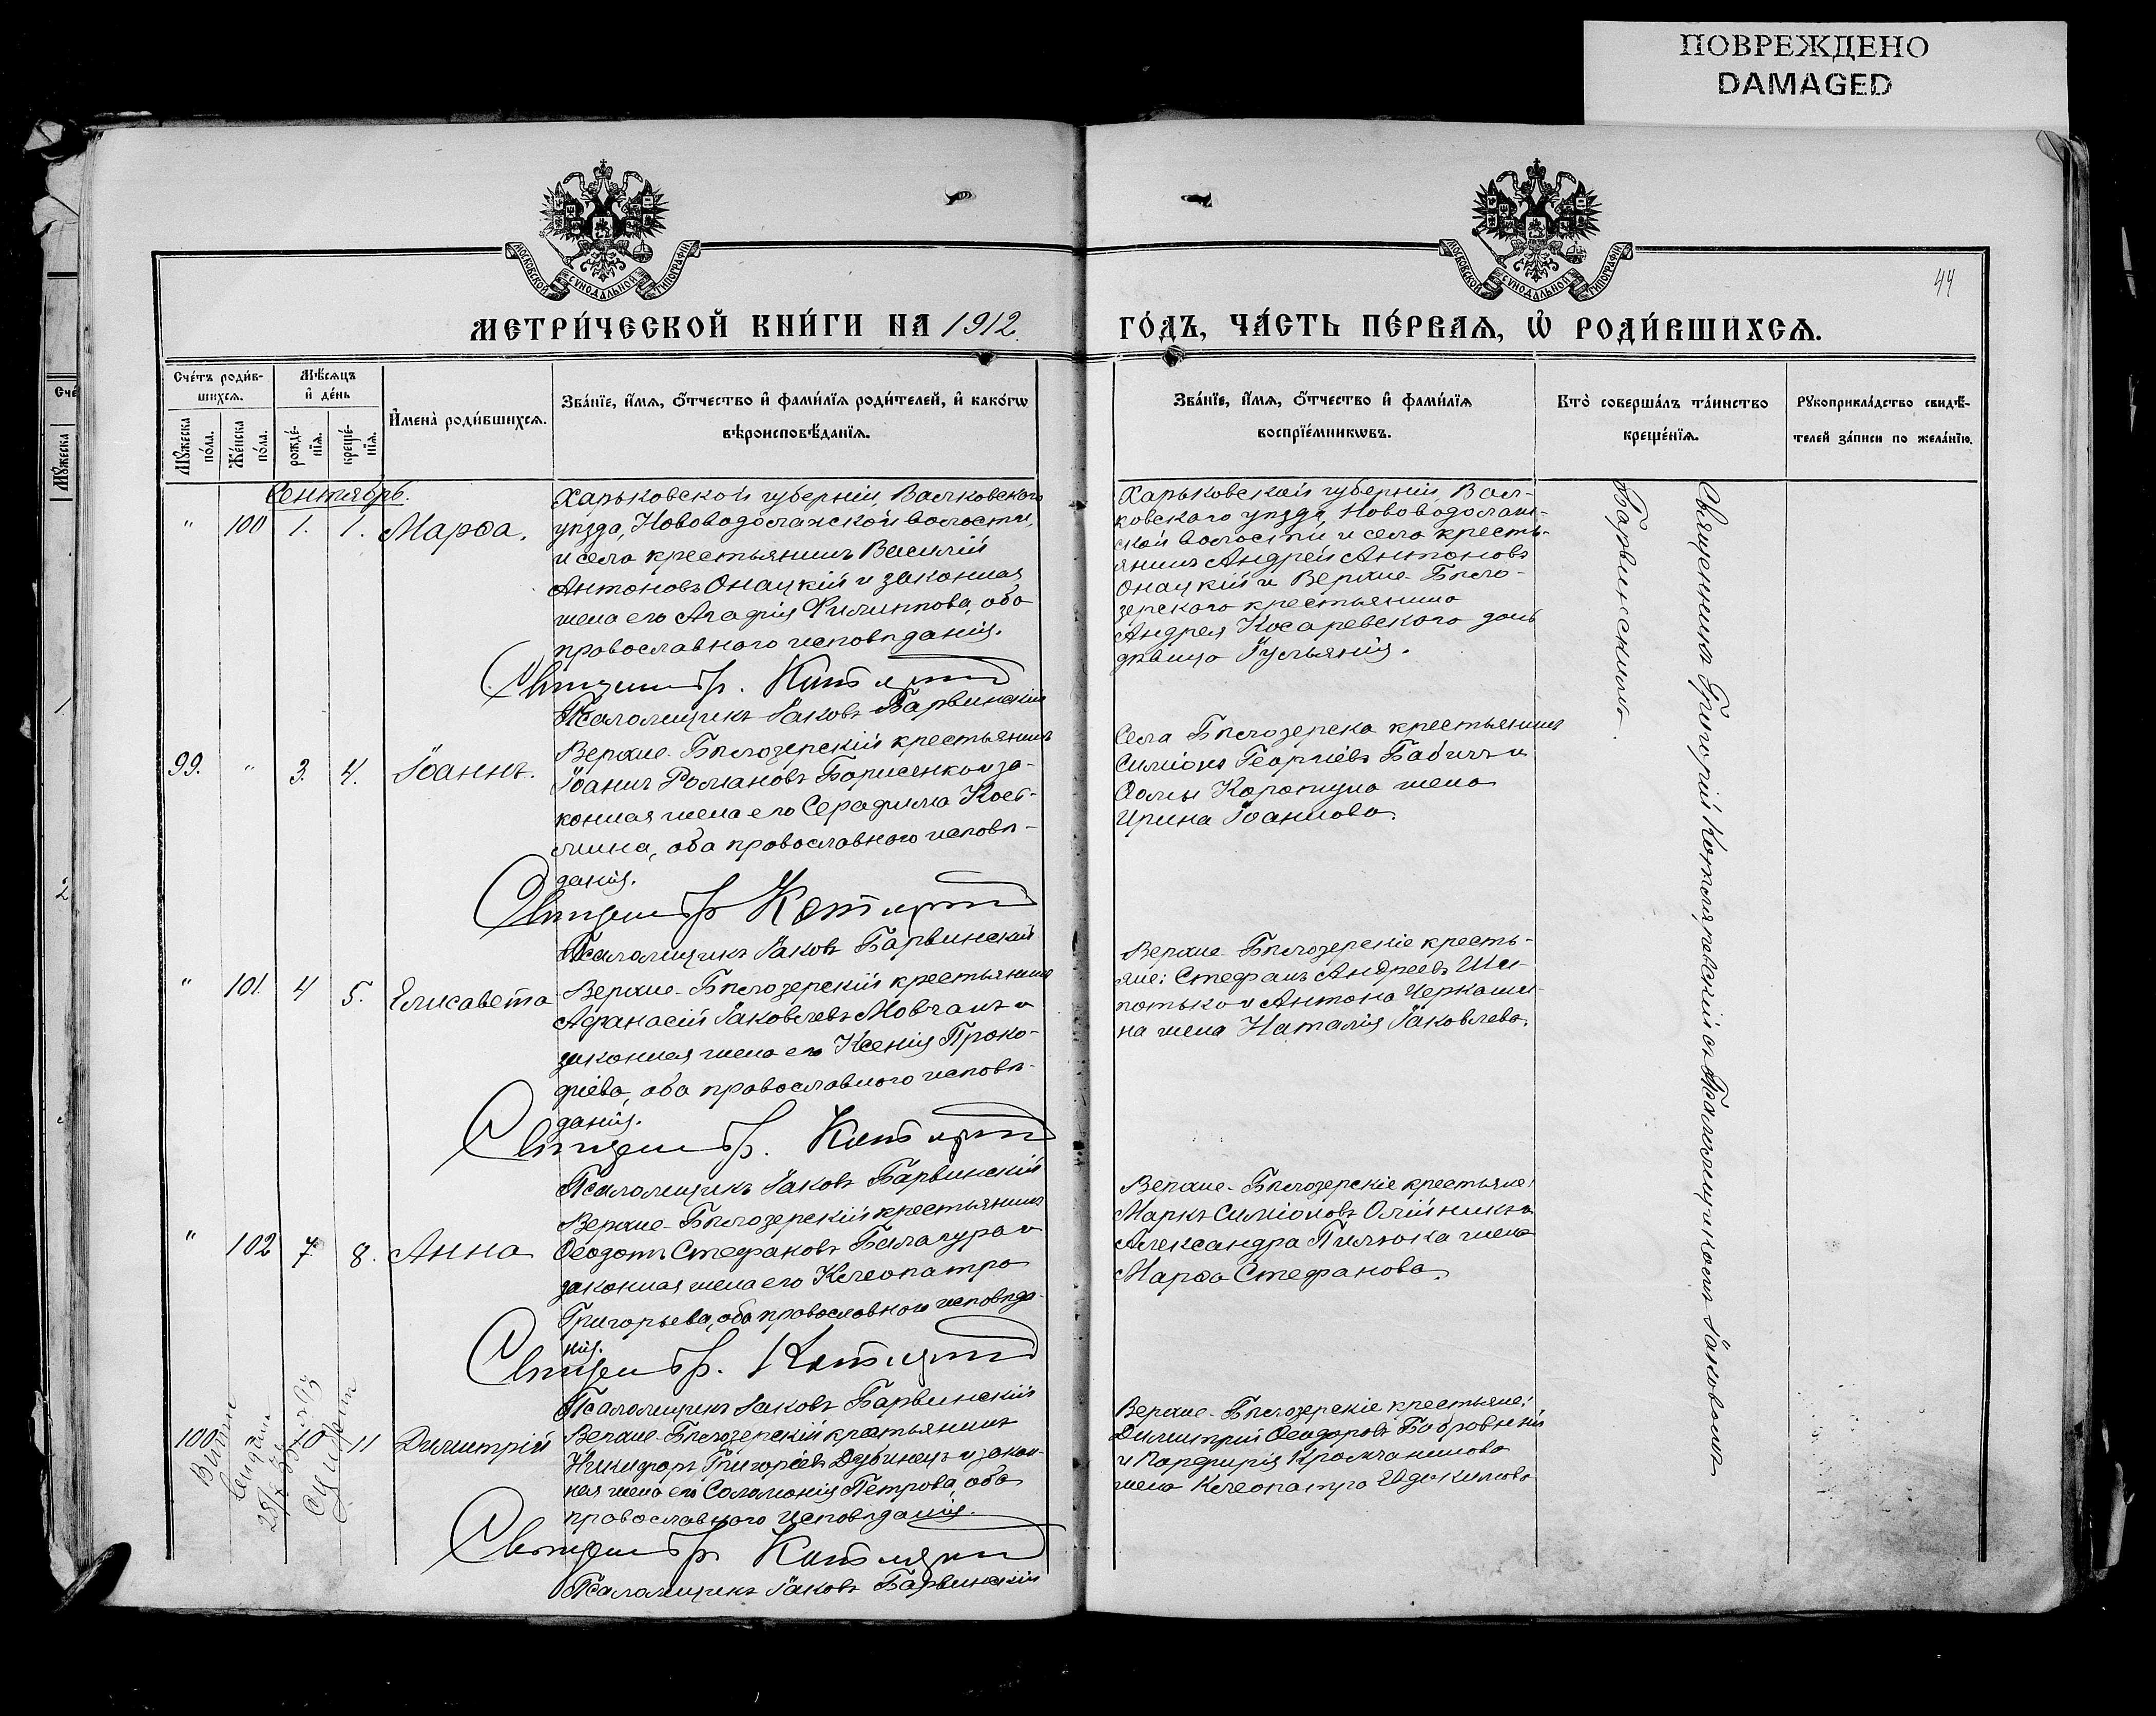 ПОВРЕЖДЕНО
DAMAGED
МОСКОВСКОЙ СУНОДАЛЬНОЙ ТИПОГРАФІИ
МОСКОВСКОЙ СУНОДАЛЬНОЙ ТИПОГРАФІИ
44
МЕТРИ́ЧЕСКОЙ КНИ́ГИ НА 1912.
ГО́ДЪ, ЧА́СТЬ ПЕ́РВАѦ, Ѡ҆ РОДИ́ВШИХСѦ.
Сче́тъ роди́в-
шихсѧ.
Мѣ́сѧцъ
и҆ де́нь
Мꙋ́жеска
по́ла.
Же́нска
по́ла.
рожде́-
нїѧ.
креще́-
нїѧ.
И҆мена̀ роди́вшихсѧ.
Зва́нїе, и҆́мѧ, ѻ҆́тчество и҆ фами́лїѧ роди́телей, и҆ како́гѡ
вѣроисповѣ́данїѧ.
Зва́нїе, и҆́мѧ, ѻ҆́тчество и҆ фами́лїѧ
воспрїе́мникѡвъ.
Кто̀ соверша́лъ та́инство
креще́нїѧ.
Рꙋкоприкла́дство свидѣ́-
телей за́писи по жела́нїю.
Сентябрь.
" 100 1. 1. Марѳа.
Харьковской губерніи, Валковского
уѣзда, Нововодолажской волости,
и села крестьянинъ Василій
Антоновъ Онацкій и законная
жена его Агафія Филиппова, оба
православного исповѣданія.
Псаломщикъ Іаковъ Барвинскій
Харьковской губерніи, Вал-
ковского уѣзда, Нововодолаж-
ской волости и села кресть-
янинъ Андрей Антоновъ
Онацкій и Верхне-Бѣло-
зерского крестьянина
Андрея Косаревского дочь
дѣвица Іуліанія.
99. " 3. 4. Іоаннъ.
Верхне-Бѣлозерскій крестьянинъ
Іоаннъ Романовъ Борисенко и за-
конная жена его Серафима Кось-
мина, оба православного исповѣ-
данія.
Псаломщикъ Іаковъ Барвинскій
Села Бѣлозерска крестьянинъ
Симіонъ Георгіевъ Бабичъ и
Ѳомы Коротуна жена
Ирина Іоаннова.
" 101. 4 5. Елисавета
Верхне-Бѣлозерскій крестьянинъ
Афанасій Іаковлевъ Мовчанъ и
законная жена его Ксенія Проко-
фіева, оба православного исповѣ-
данія.
Псаломщикъ Іаковъ Барвинскій
Верхне-Бѣлозерскіе кресть-
яне: Стефанъ Андреевъ Ши-
потько и Антона Черкаши-
на жена Наталія Іаковлева.
" 102 7. 8. Анна
Верхне-Бѣлозерскій крестьянинъ
Ѳеодотъ Стефановъ Балагура и
законная жена его Клеопатра
Григорьева, оба православного исповѣда-
нія.
Псаломщикъ Іаковъ Барвинскій
Верхне-Бѣлозерскіе крестьяне:
Маркъ Симіоновъ Олійникъ и
Александра Пилюка жена
Марѳа Стефанова.
100 " 10 11 Димитрій
Верхне-Бѣлозерскій крестьянинъ
Никифоръ Григоріевъ Дубинецъ и закон-
ная жена его Соломонія Петрова, оба
православного исповѣданія.
Псаломщикъ Іаковъ Барвинскій
Верхне-Бѣлозерскіе крестьяне:
Димитрій Ѳеодоровъ Бобровскій
и Порфирія Крамчанинова
жена Клеопатра Евдокимова
Священникъ Григорій Котляревскій съ Псаломщикомъ Іаковомъ
Барвинскимъ.